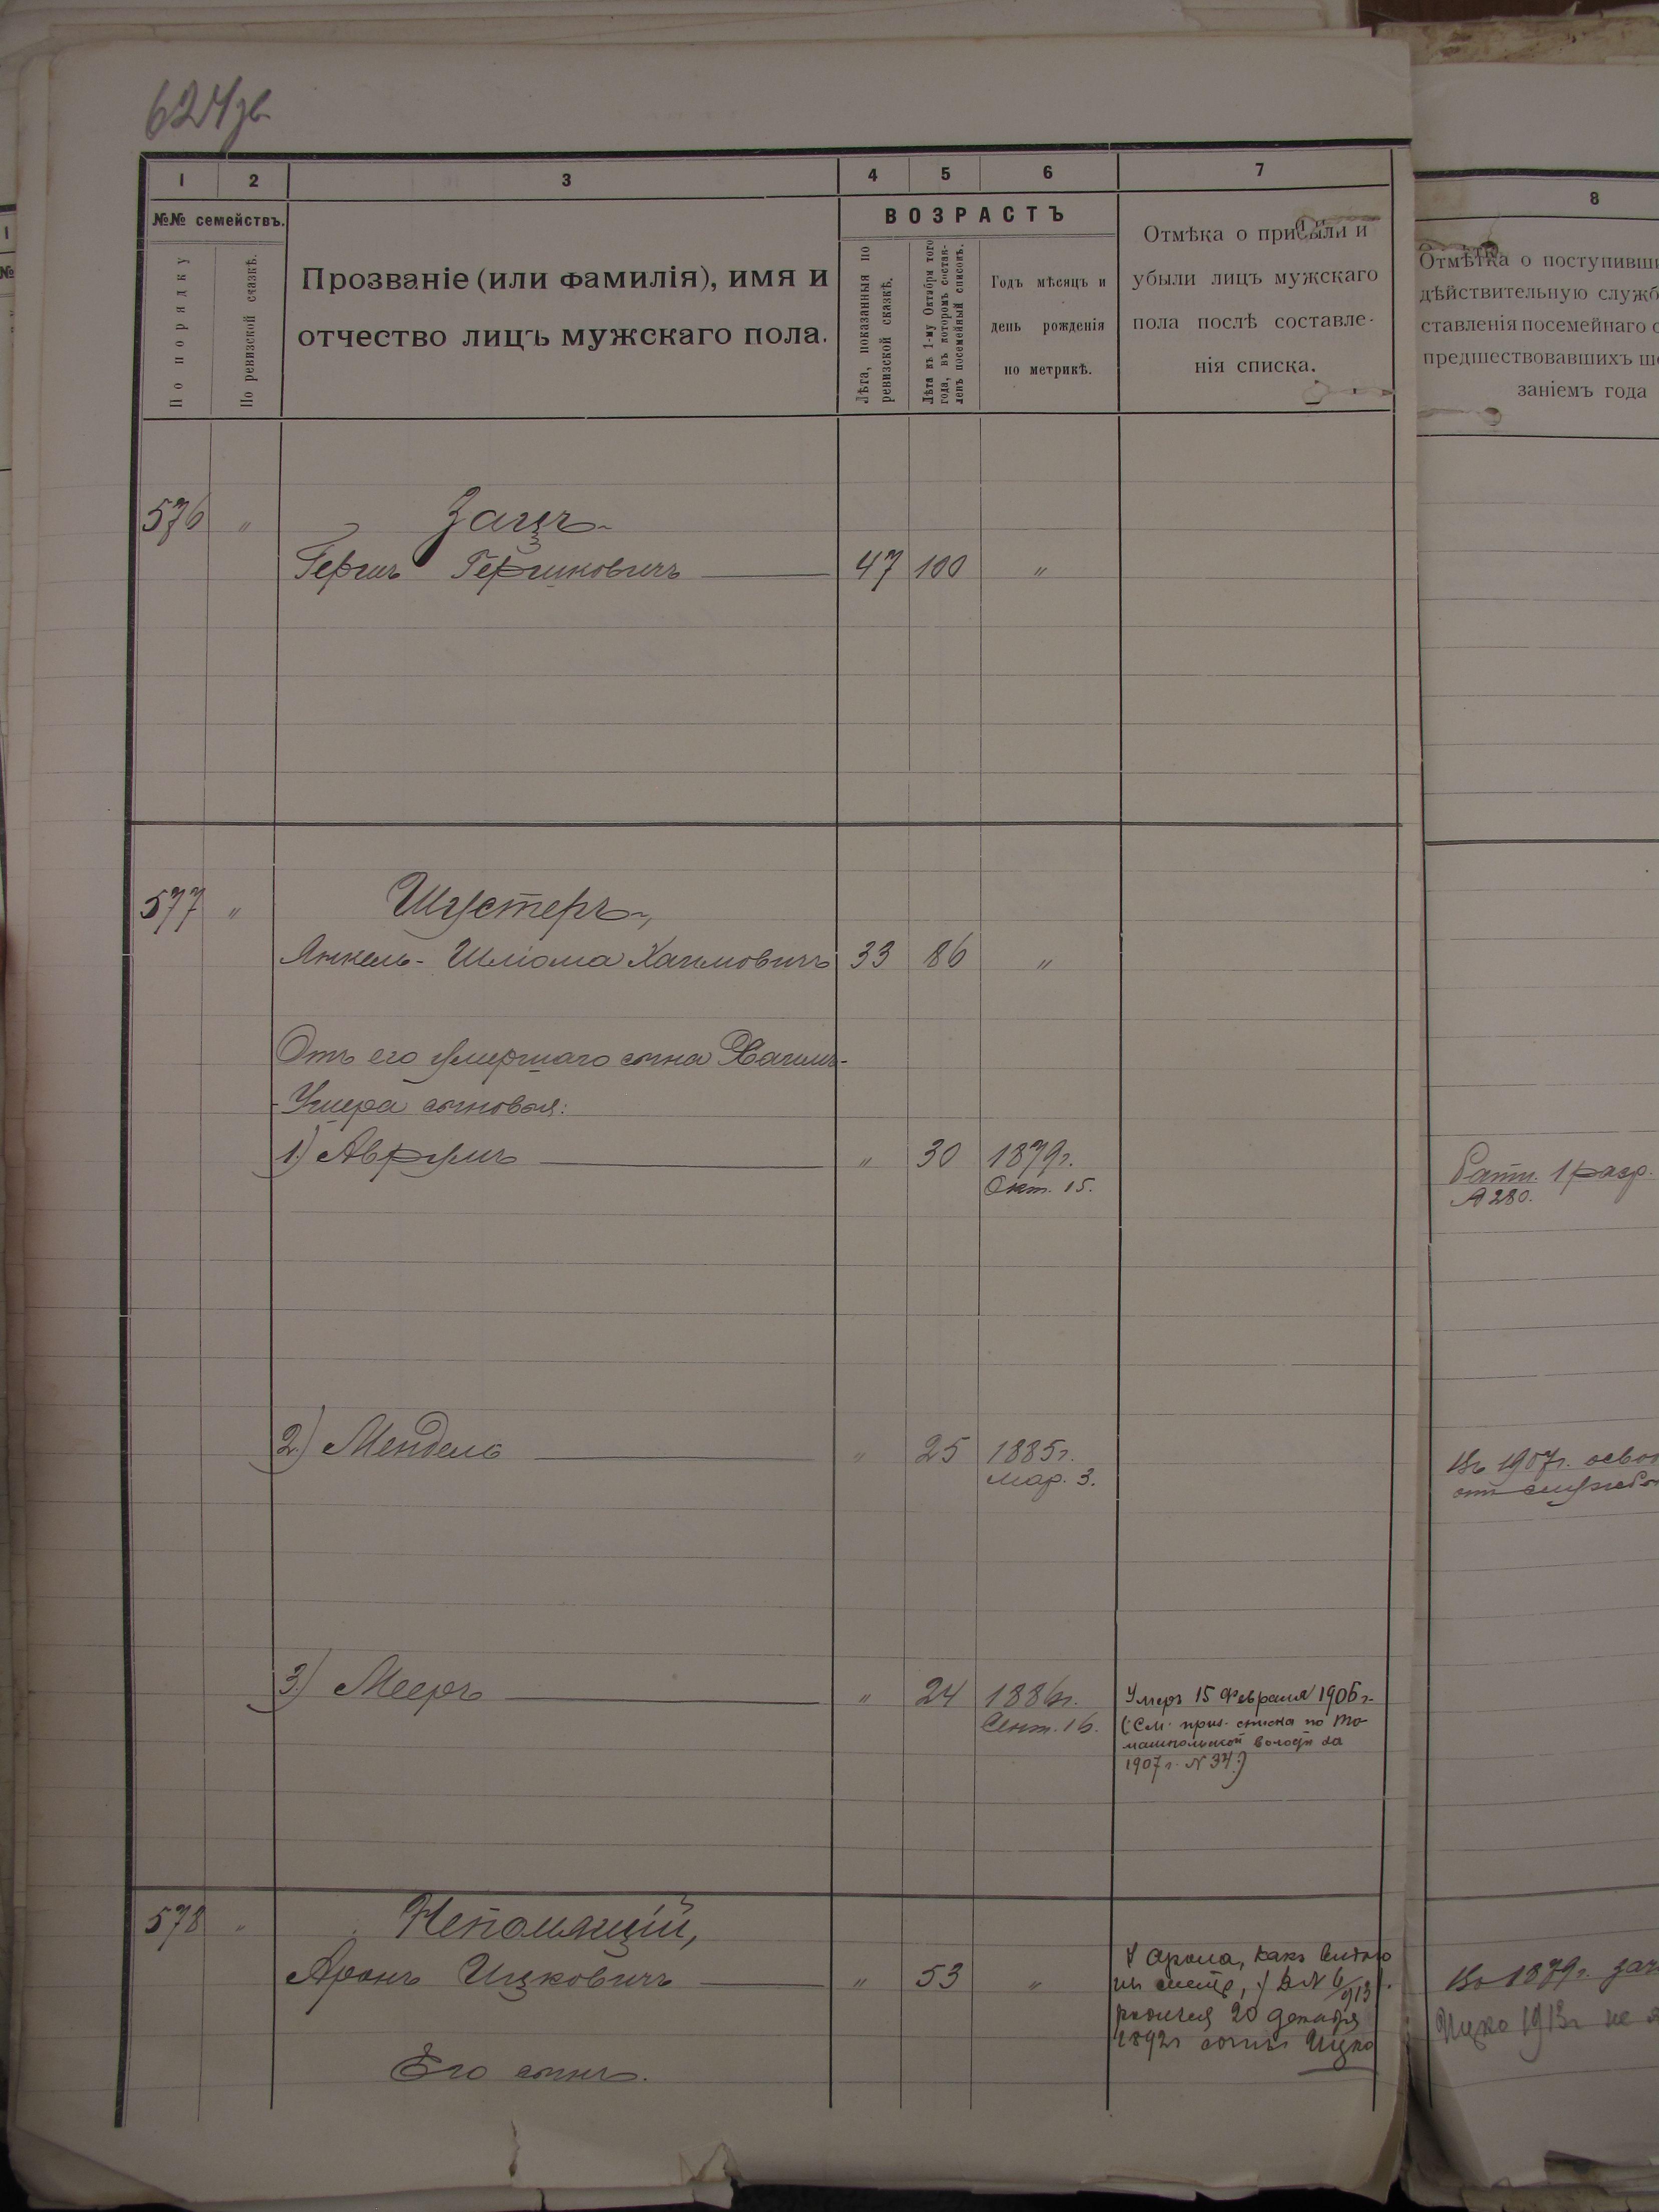 624 зв
1 2 3 4 5 6 7
№№ семействъ.
По порядку
По ревизской сказкѣ.
Прозваніе (или фамилія), имя и
отчество лицъ мужскаго пола.
ВОЗРАСТЪ
Лѣта, показанныя по
ревизской сказкѣ.
Лѣта къ 1-му Октября того
года, въ которомъ состав-
ленъ посемейный списокъ.
Годъ мѣсяцъ и
день рожденія
по метрикѣ.
Отмѣка о прибыли и
убыли лицъ мужскаго
пола послѣ составле-
нія списка.
8
Отмѣтка о поступивши
дѣйствительную служб
ставленія посемейнаго с
предшествовавшихъ
заніемъ года
576 "
Зацъ
Гершъ Гершковичъ 47 100 "
577 "
Шустеръ,
Янкель-Шліома Хаимовичъ 33 86 "
Отъ его умершаго сына Хаимъ-
-Ушера сыновья:
1) Аврумъ " 30 1879г.
Окт. 15.
Ратн. 1 разр.
А 280.
2) Мендель " 25 1885г.
Мар. 3.
Въ 1907г. осво
отъ службы
3) Мееръ " 24 1886г.
Сент. 16.
Умеръ 15 Февраля 1906 г.
(См. приз. списка по То-
машпольской волости за
1907 г. N 34.)
578 "
Непомнящій,
Аронъ Ицковичъ " 53 "
У Арона, какъ видно
изъ 6/913.
родился 20 декабря
1892г сынъ Ицко
Въ 1879г. зач
Ицко 1913г не
Его сынъ.